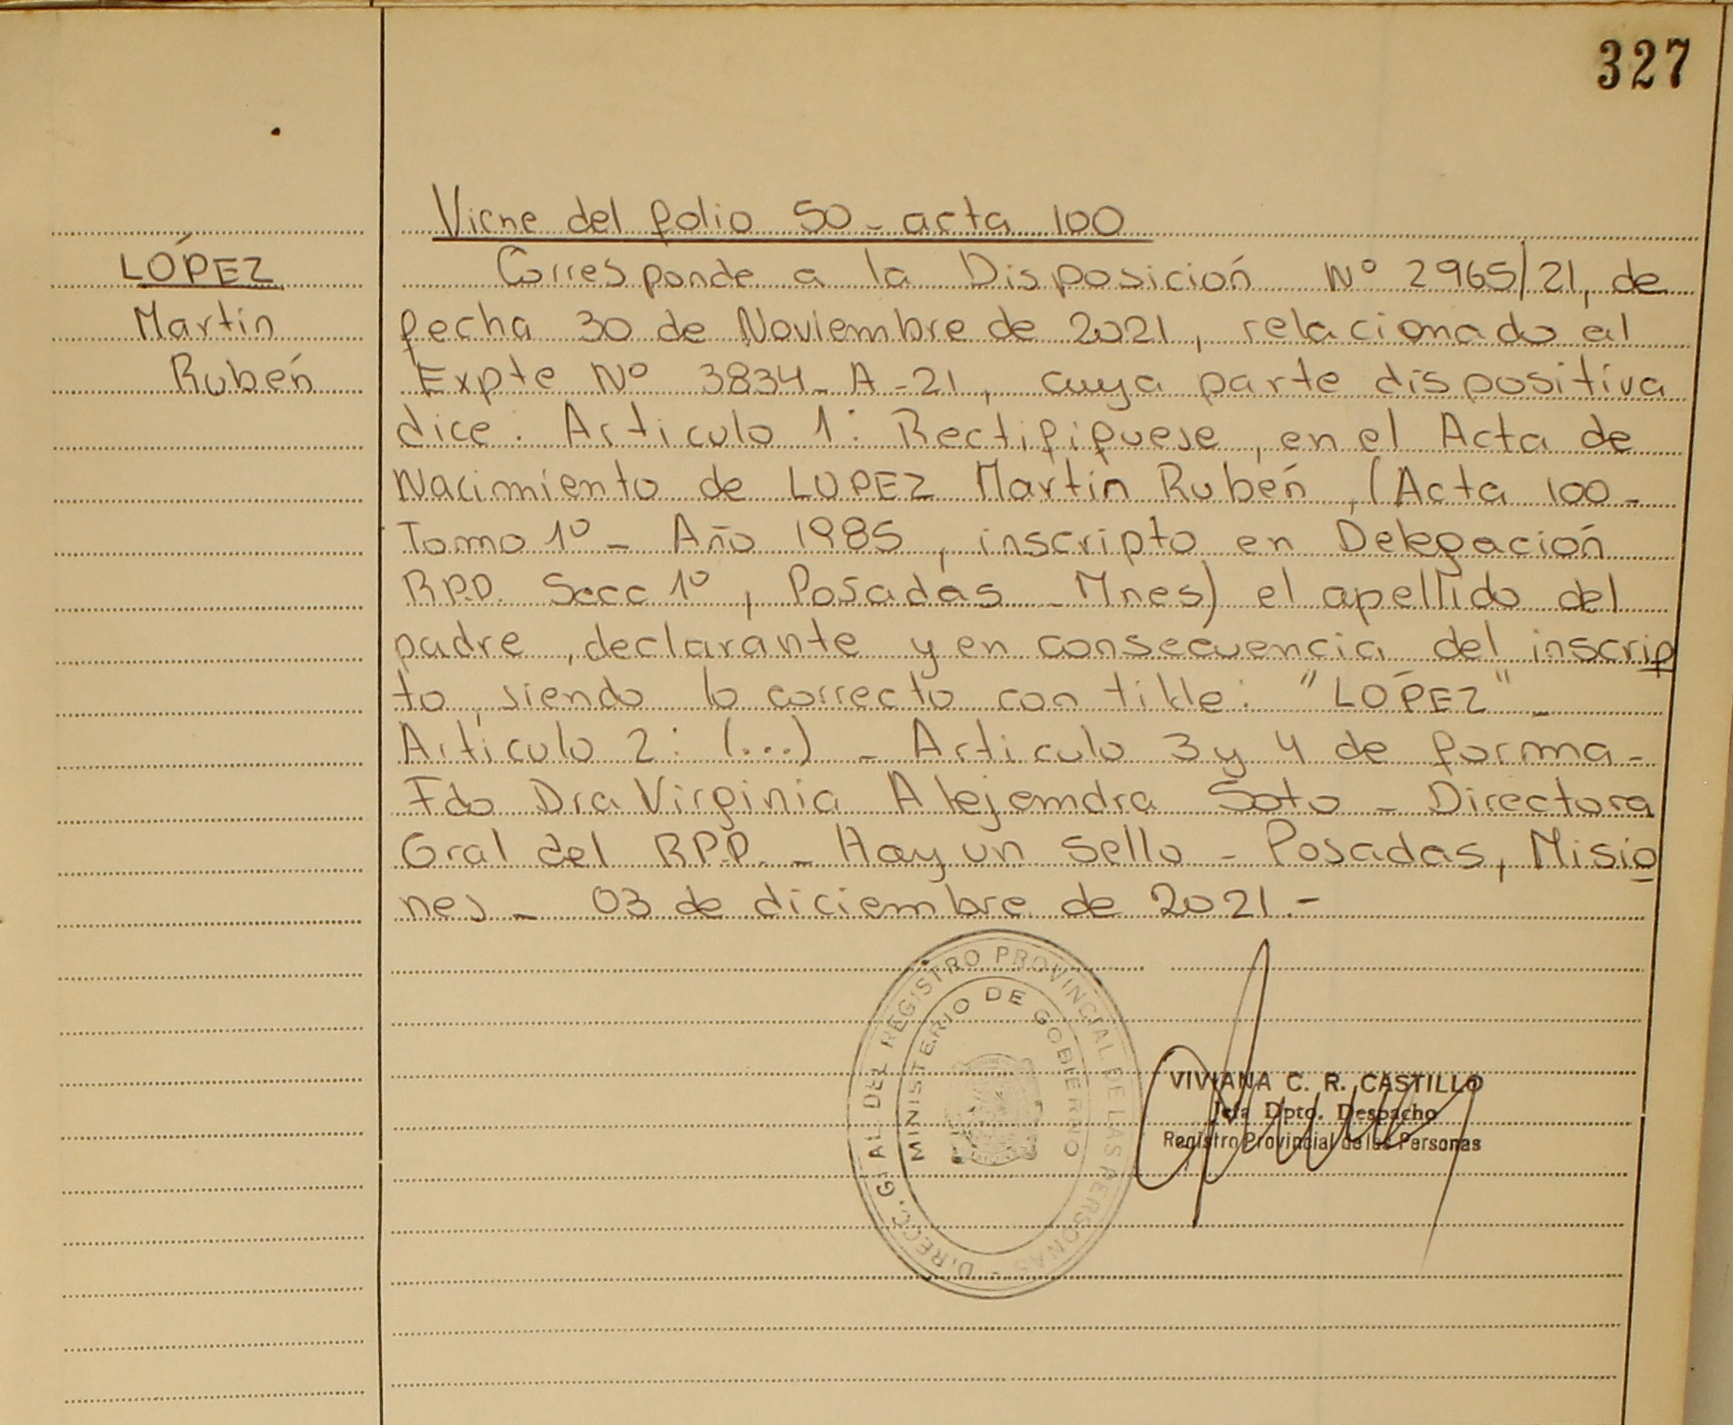 327
Viene del folio 50 - acta 100
LÓPEZ
Martín
Rubén
Corresponde a la Disposición Nº 2965/21, de
fecha 30 de Noviembre de 2021, relacionado al
Expte Nº 3834-A-21, cuya parte dispositiva
dice: Articulo 1: Rectifiquese, en el Acta de
Nacimiento de LOPEZ Martín Rubén, (Acta 100-
Tomo 1º - Año 1985, inscripto en Delegación
R.P.P. Secc 1º, Posadas - Mnes) el apellido del
padre, declarante y en consecuencia del inscrip
to, siendo lo correcto con tilde: "LÓPEZ" -
Artículo 2: (...) - Articulo 3 y 4 de forma -
Fdo Dra Virginia Alejandra Soto - Directora
Gral del R.P.P. - Hay un sello - Posadas, Misio
nes - 03 de diciembre de 2021.-
DIRECC. GRAL DEL REGISTRO PROVINCIAL DE LAS PERSONAS -
MINISTERIO DE GOBIERNO
VIVIANA C. R. CASTILLO
Jefa Dpto. Despacho
Registro Provincial de las Personas